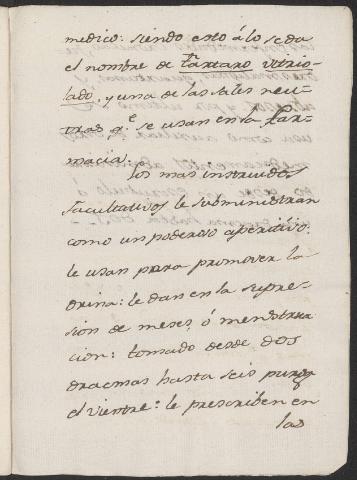 medico: siendo esto á lo se da
el nombre de Tartaro vitrio-
lado, y una de las sales neu-
tras q.e se usan en la Far-
macia:
Los mas instruidos
facultativos le subministran
como un poderoso aperitivo:
le usan para promover la
orina: le dan en la supre-
sion de meses, ó menstrua
cion: tomado desde dos
dracmas hasta seis purga
el vientre: le prescriben en
las